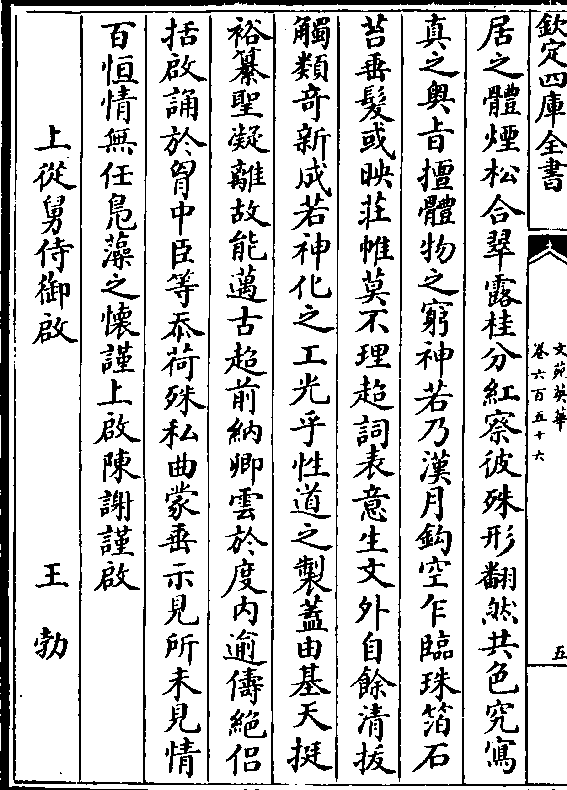 欽定四庫全書
文苑英華
卷六百五十六
五
居之體煙松合翠露桂分紅察彼殊形翻然共色究寫
真之奥旨擅體物之窮神若乃漢月鈎空乍臨珠箔石
苔垂髮或映莊帷莫不理超詞表意生文外自餘清拔
觸類竒新成若神化之工光乎性道之製蓋由基天挺
裕纂聖凝離故能邁古超前納卿雲於度内逾儔絶侣
括啟誦於胷中臣等忝荷殊私曲蒙垂示見所未見情
百恒情無任鳬藻之懐謹上啟陳謝謹啟
上從舅侍御啟　王勃